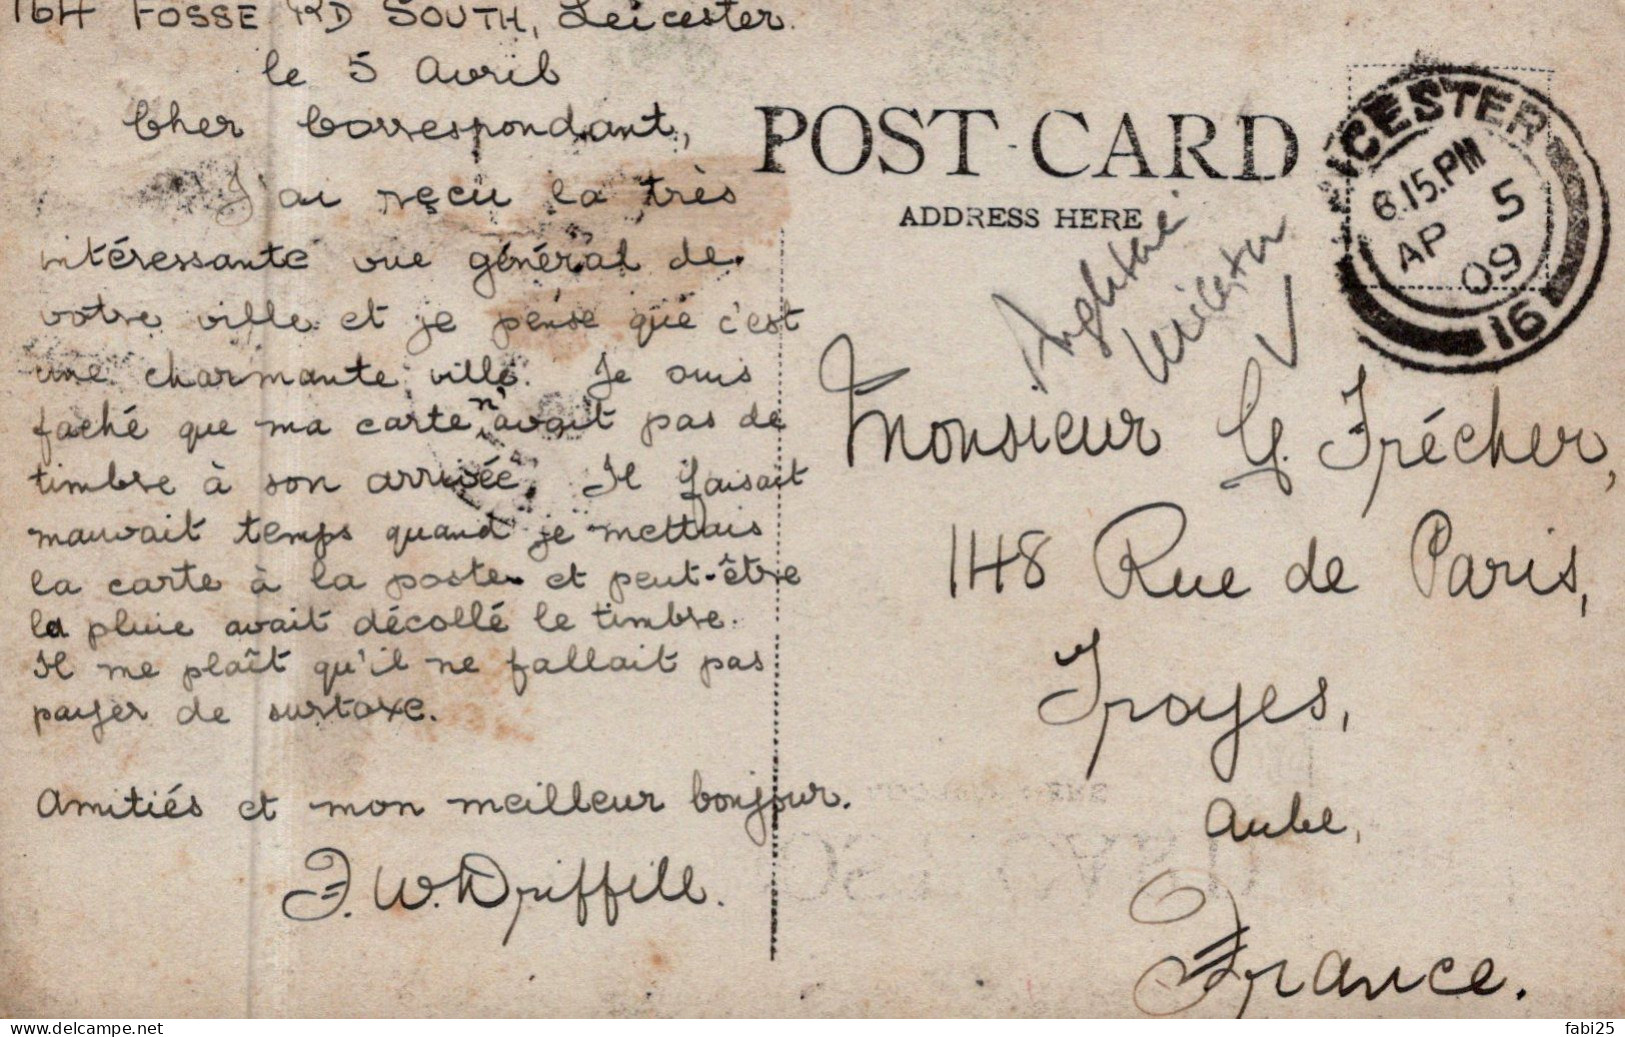 164 FOSSE RD SOUTH, Leicester.
le 5 Avril
Cher Correspondant,
J'ai reçu la très
intéressante vue général de
votre ville et je pense que c'est
une charmante ville. Je suis
faché que ma carte n'avait pas de
timbre à son arrivée. Il faisait
mauvait temps quand je mettais
la carte à la poste et peut-être
la pluie avait décollé le timbre.
Il me plaît qu'il ne fallait pas
payer de surtaxe.
Amitiés et mon meilleur bonjour.
F. W. Driffill.
POST CARD
ADDRESS HERE
ICESTER
6.15.PM
AP 5
09
16
Monsieur G. Frécher,
148 Rue de Paris,
Troyes,
Aube,
France.
delcampe.net
fabi25